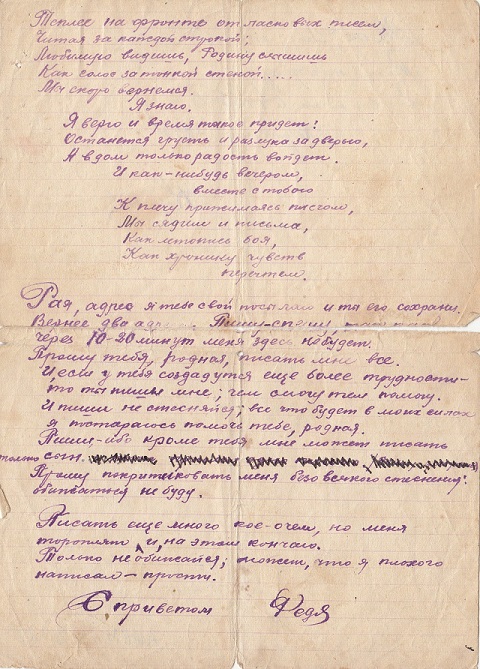 Теплее на фронте от ласковых писем,
Читая за каждой строкой;
Любимую видишь, Родину слышишь
Как голос за тонкой стеной.....
Мы скоро вернемся.
Я знаю.
Я верю и время такое придет!
Останется грусть и разлука за дверью,
А в дом только радость войдет.
И как-нибудь вечером,
вместе с тобою
К плечу прижимаясь плечом,
Мы сядим и письма,
Как летопись боя,
Как хронику чувств
перечтем.
Рая, адрес я тебе свой посылаю и ты его сохрани.
Вернее два Пишу-спешу,
через 10-20 минут меня здесь не будет.
Прошу тебя, родная, писать мне все.
И если у тебя создадутся еще более трудности-
то ты пиши мне; чем смогу тем помогу.
И пиши не стесняйся; все что будет в моих силах
я постараюсь помочь тебе, родная.
Пиши-ибо кроме тебя мне может писать
только сын.
Прошу покритиковать меня безо всякого стеснения:
обижаться не буду.
Писать еще много кое-о чем, но меня
торопят и, на этом кончаю.
Только не обижайся; может, что я плохого
написал-прости.
С приветом Федя